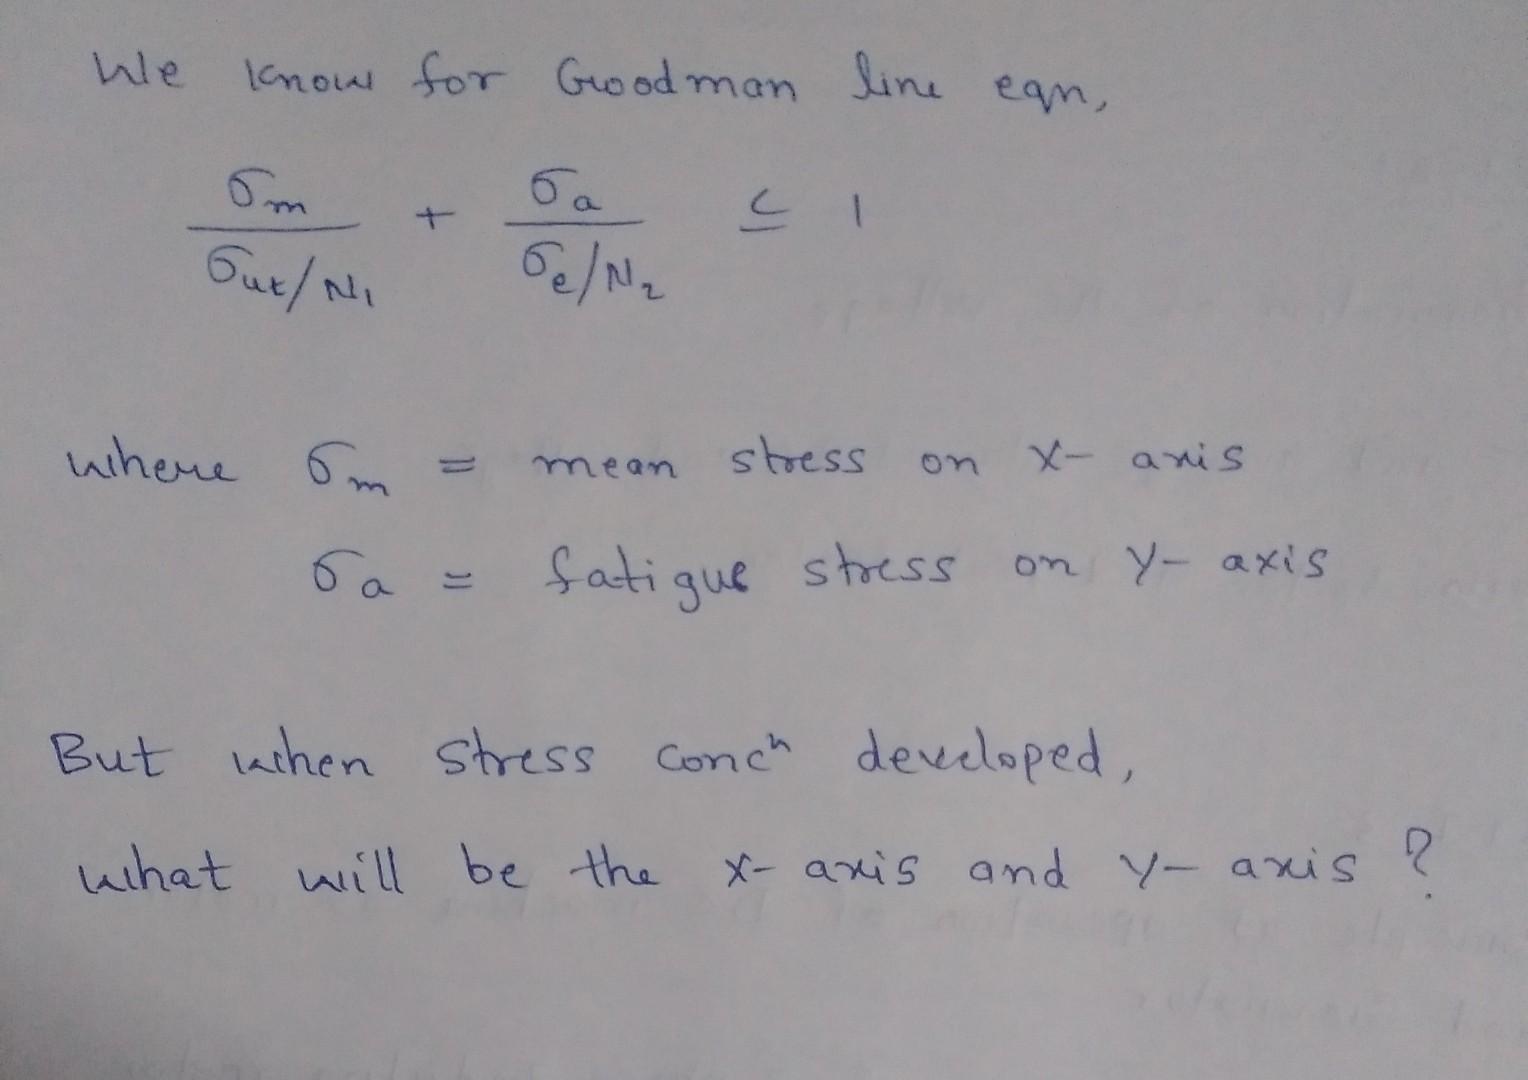 We know for Goodman line eqn,
σm / (σut/N₁) + σa / (σe/N₂) ≤ 1
where σm = mean stress on X- axis
σa = fatigue stress on Y- axis
But when stress concⁿ developed,
what will be the x- axis and y- axis ?